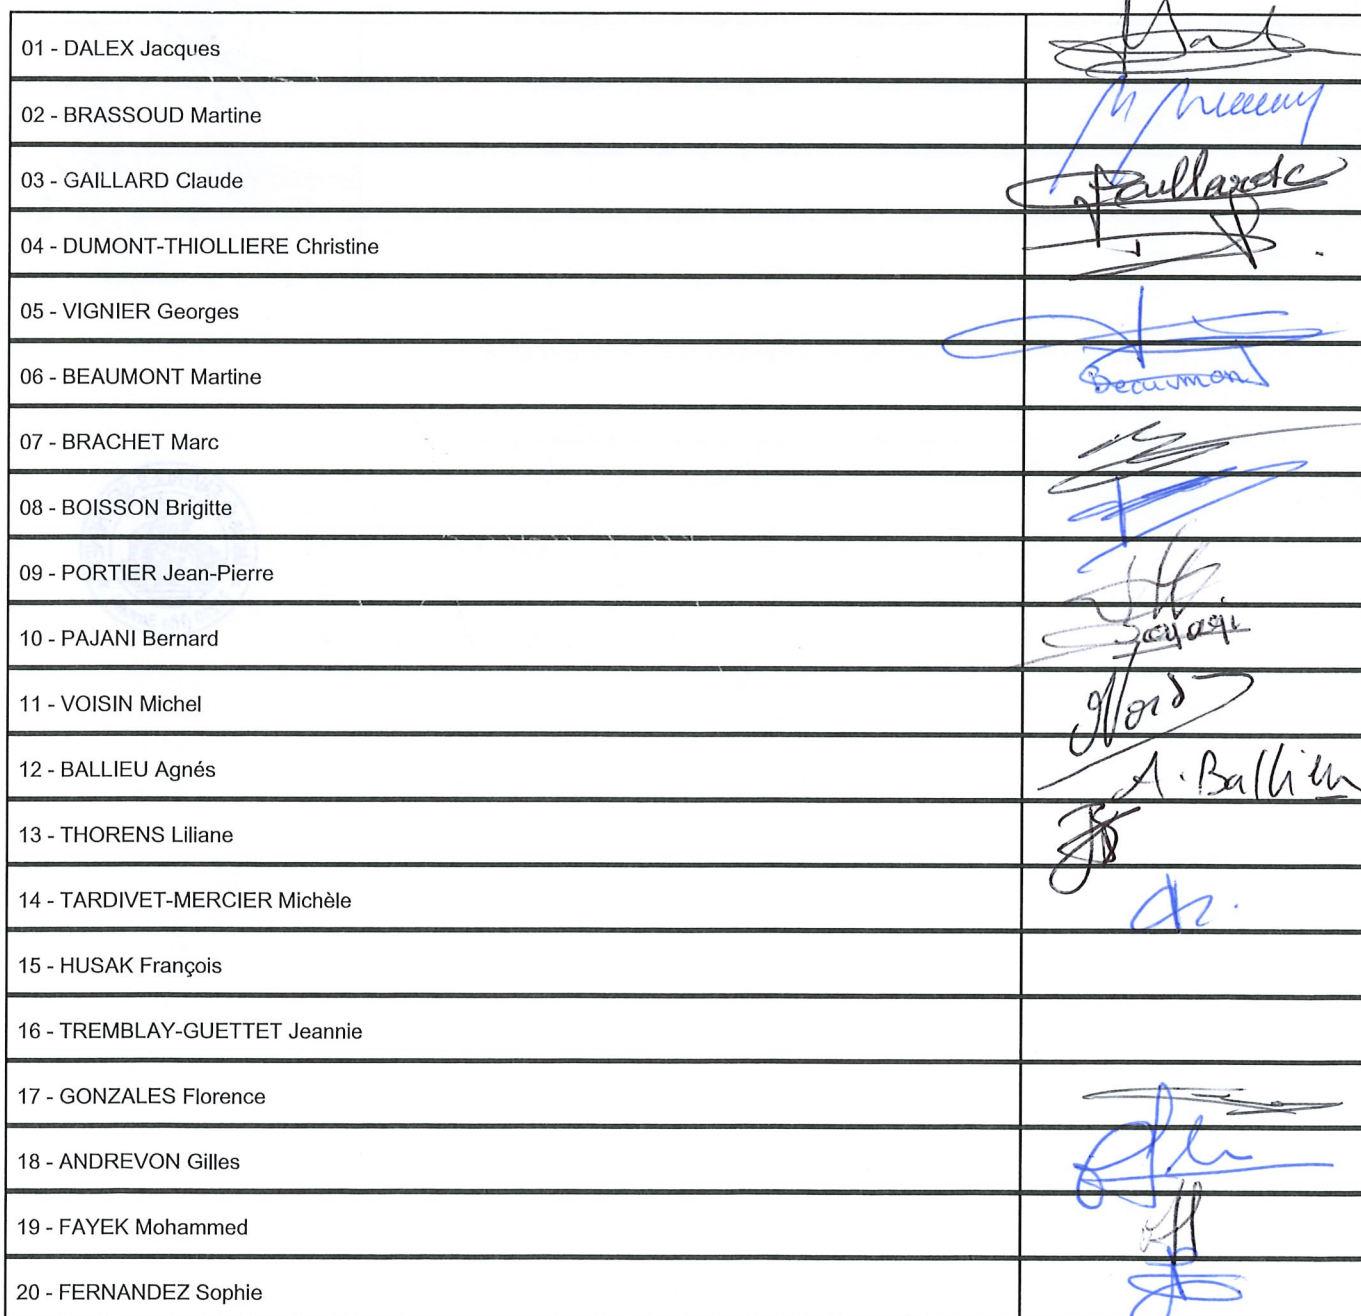 01 - DALEX Jacques
02 - BRASSOUD Martine
03 - GAILLARD Claude
04 - DUMONT-THIOLLIERE Christine
05 - VIGNIER Georges
06 - BEAUMONT Martine Beaumont
07 - BRACHET Marc
08 - BOISSON Brigitte
09 - PORTIER Jean-Pierre
10 - PAJANI Bernard
11 - VOISIN Michel
12 - BALLIEU Agnés A. Ballieu
13 - THORENS Liliane
14 - TARDIVET-MERCIER Michèle
15 - HUSAK François
16 - TREMBLAY-GUETTET Jeannie
17 - GONZALES Florence
18 - ANDREVON Gilles
19 - FAYEK Mohammed
20 - FERNANDEZ Sophie